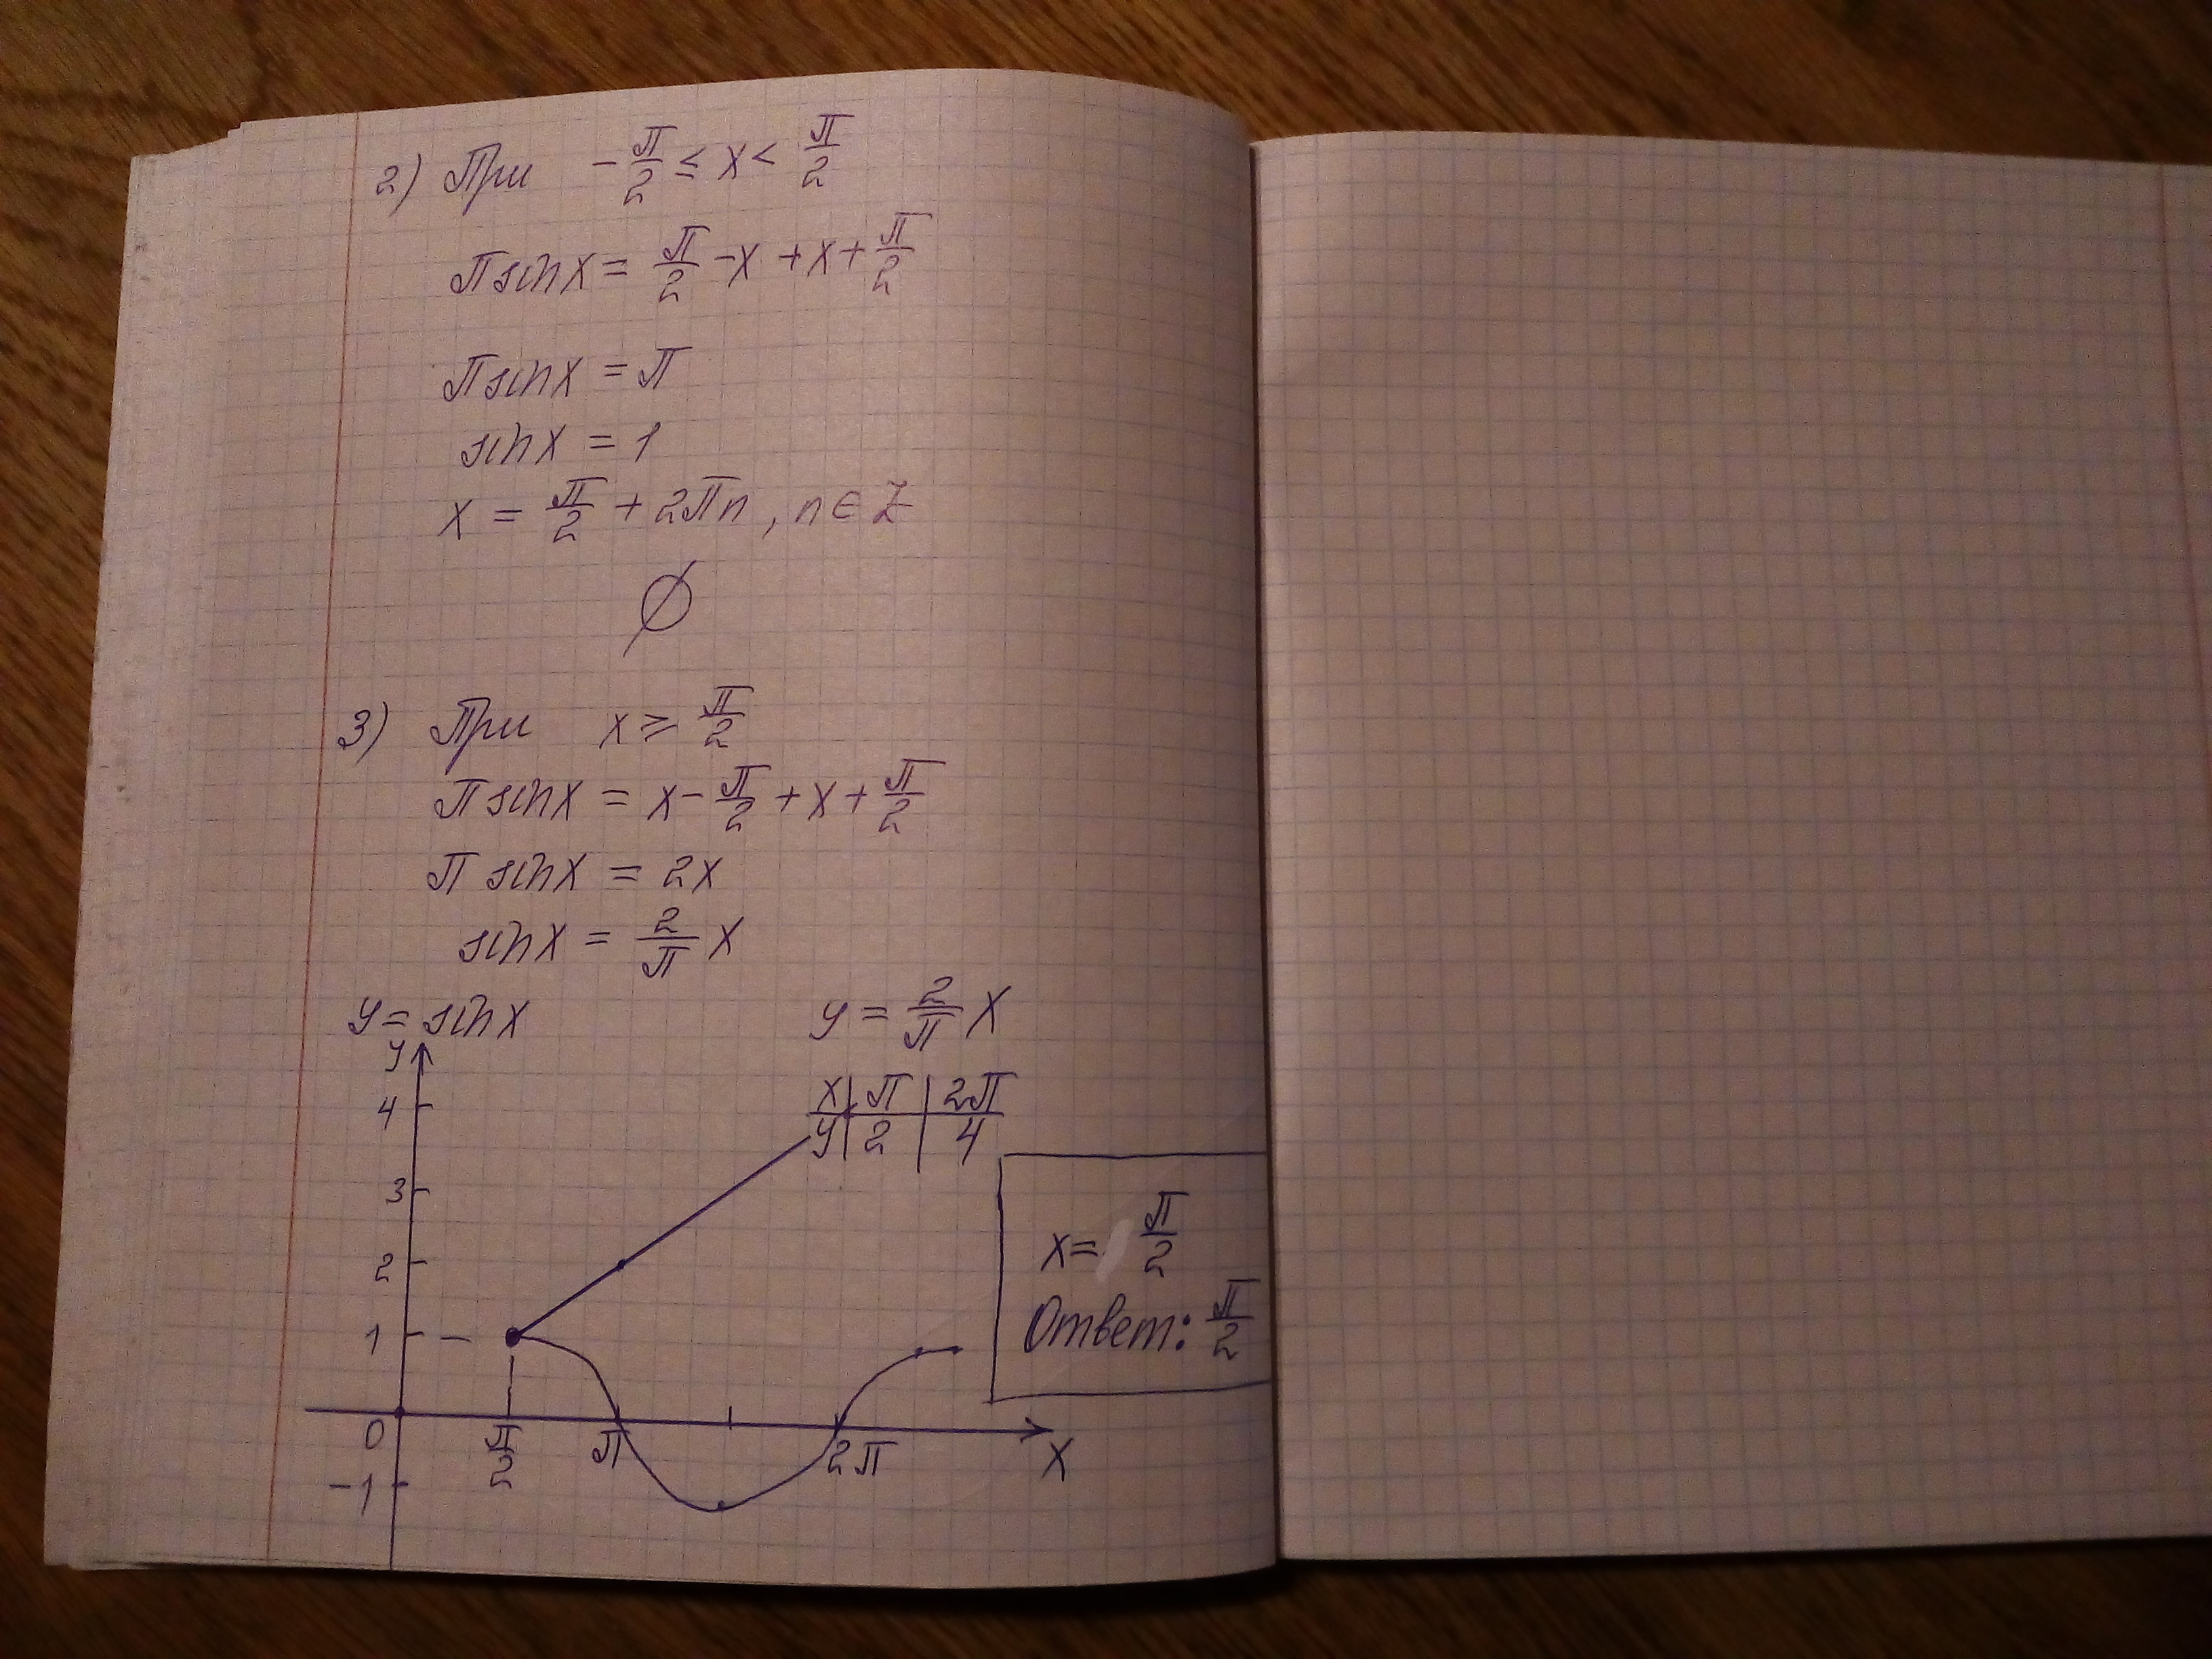 2) При -π/2 ≤ x < π/2
π sin x = π/2 - x + x + π/2
π sin x = π
sin x = 1
x = π/2 + 2πn, n ∈ Z
∅
3) При x ≥ π/2
π sin x = x - π/2 + x + π/2
π sin x = 2x
sin x = 2/π x
y = sin x
y = 2/π x
x | π | 2π
y | 2 | 4
y
4
3
2
1
0
-1
π/2
π
2π
x
x = π/2
Ответ: π/2